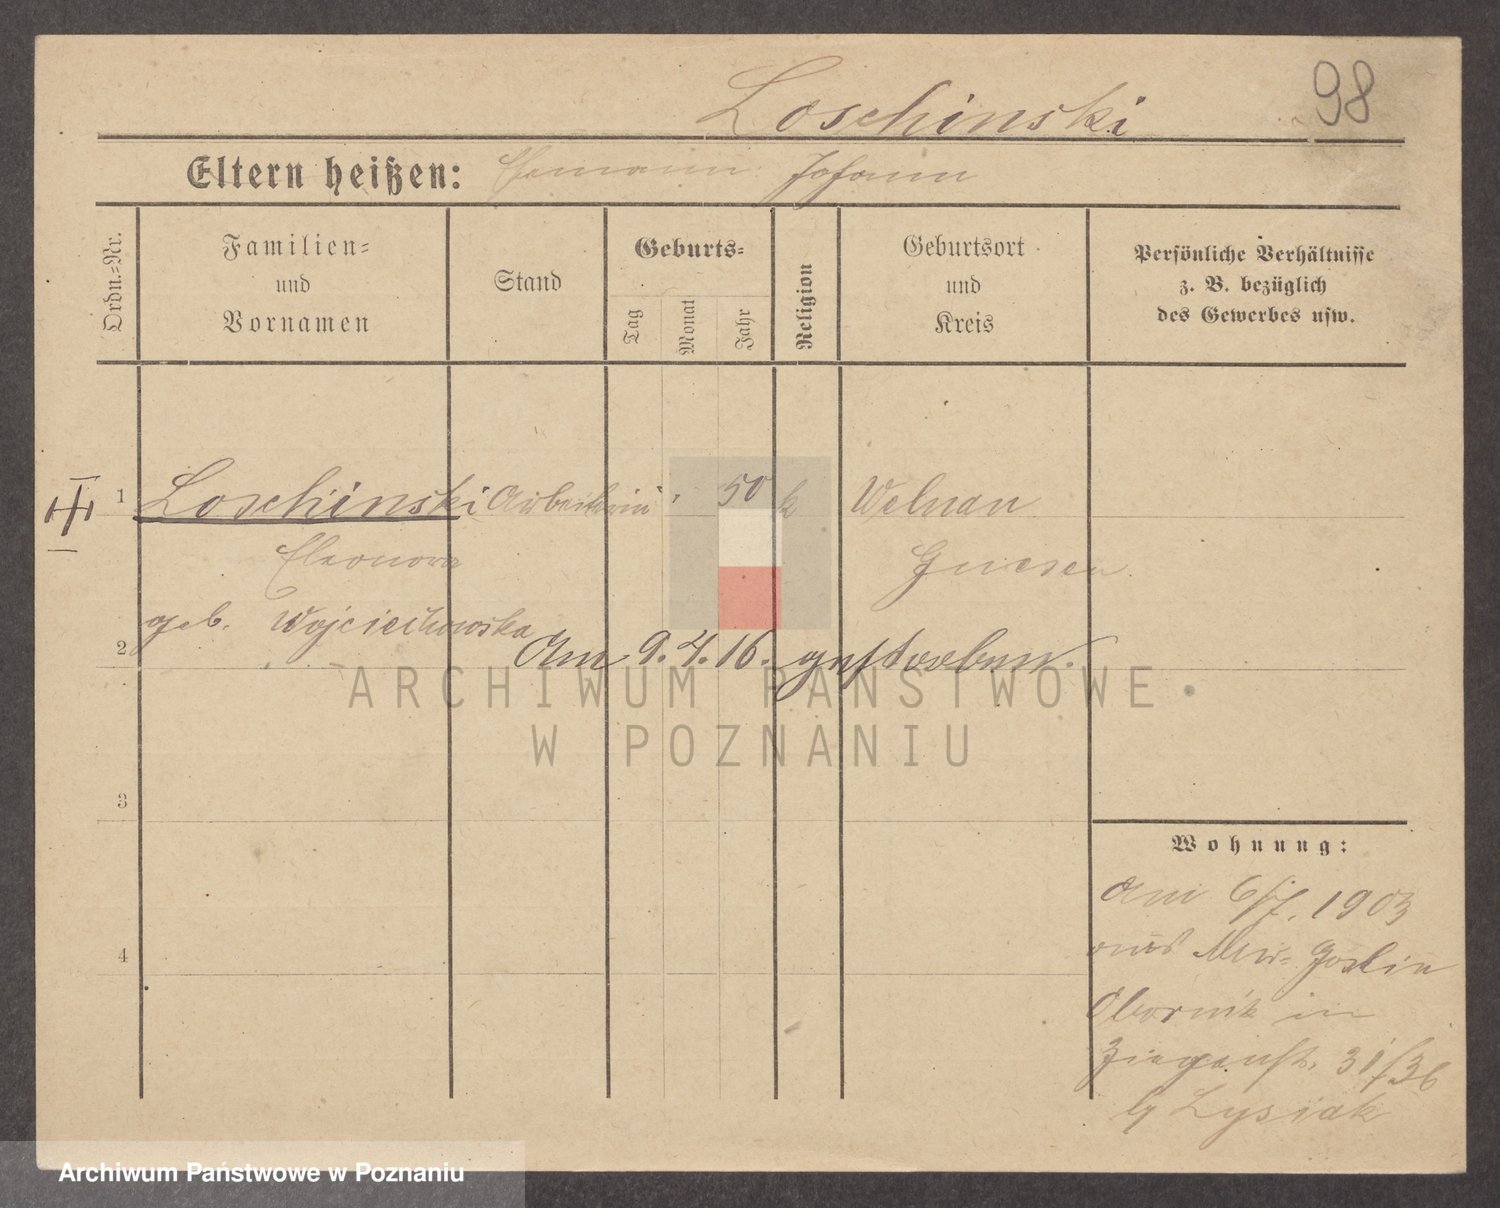 98
Loschinski
Eltern heißen: Ehemann Johann
Ordn.-Nr.
Familien-
und
Vornamen
Stand
Geburts-
Tag
Monat
Jahr
Religion
Geburtsort
und
Kreis
Persönliche Verhältnisse
z. B. bezüglich
des Gewerbes usw.
1 Loschinski Arbeiterin 50 k Welnau
Eleonora Gnesen
geb. Wojciechowska
2 Am 9.4.16. gestorben.
ARCHIWUM PAŃSTWOWE
W POZNANIU
3
Wohnung:
am 6/7. 1903
4
aus Neu-Goslin
Obornik in
Ziegenstr. 31/36
b/ Lysiak
Archiwum Państwowe w Poznaniu